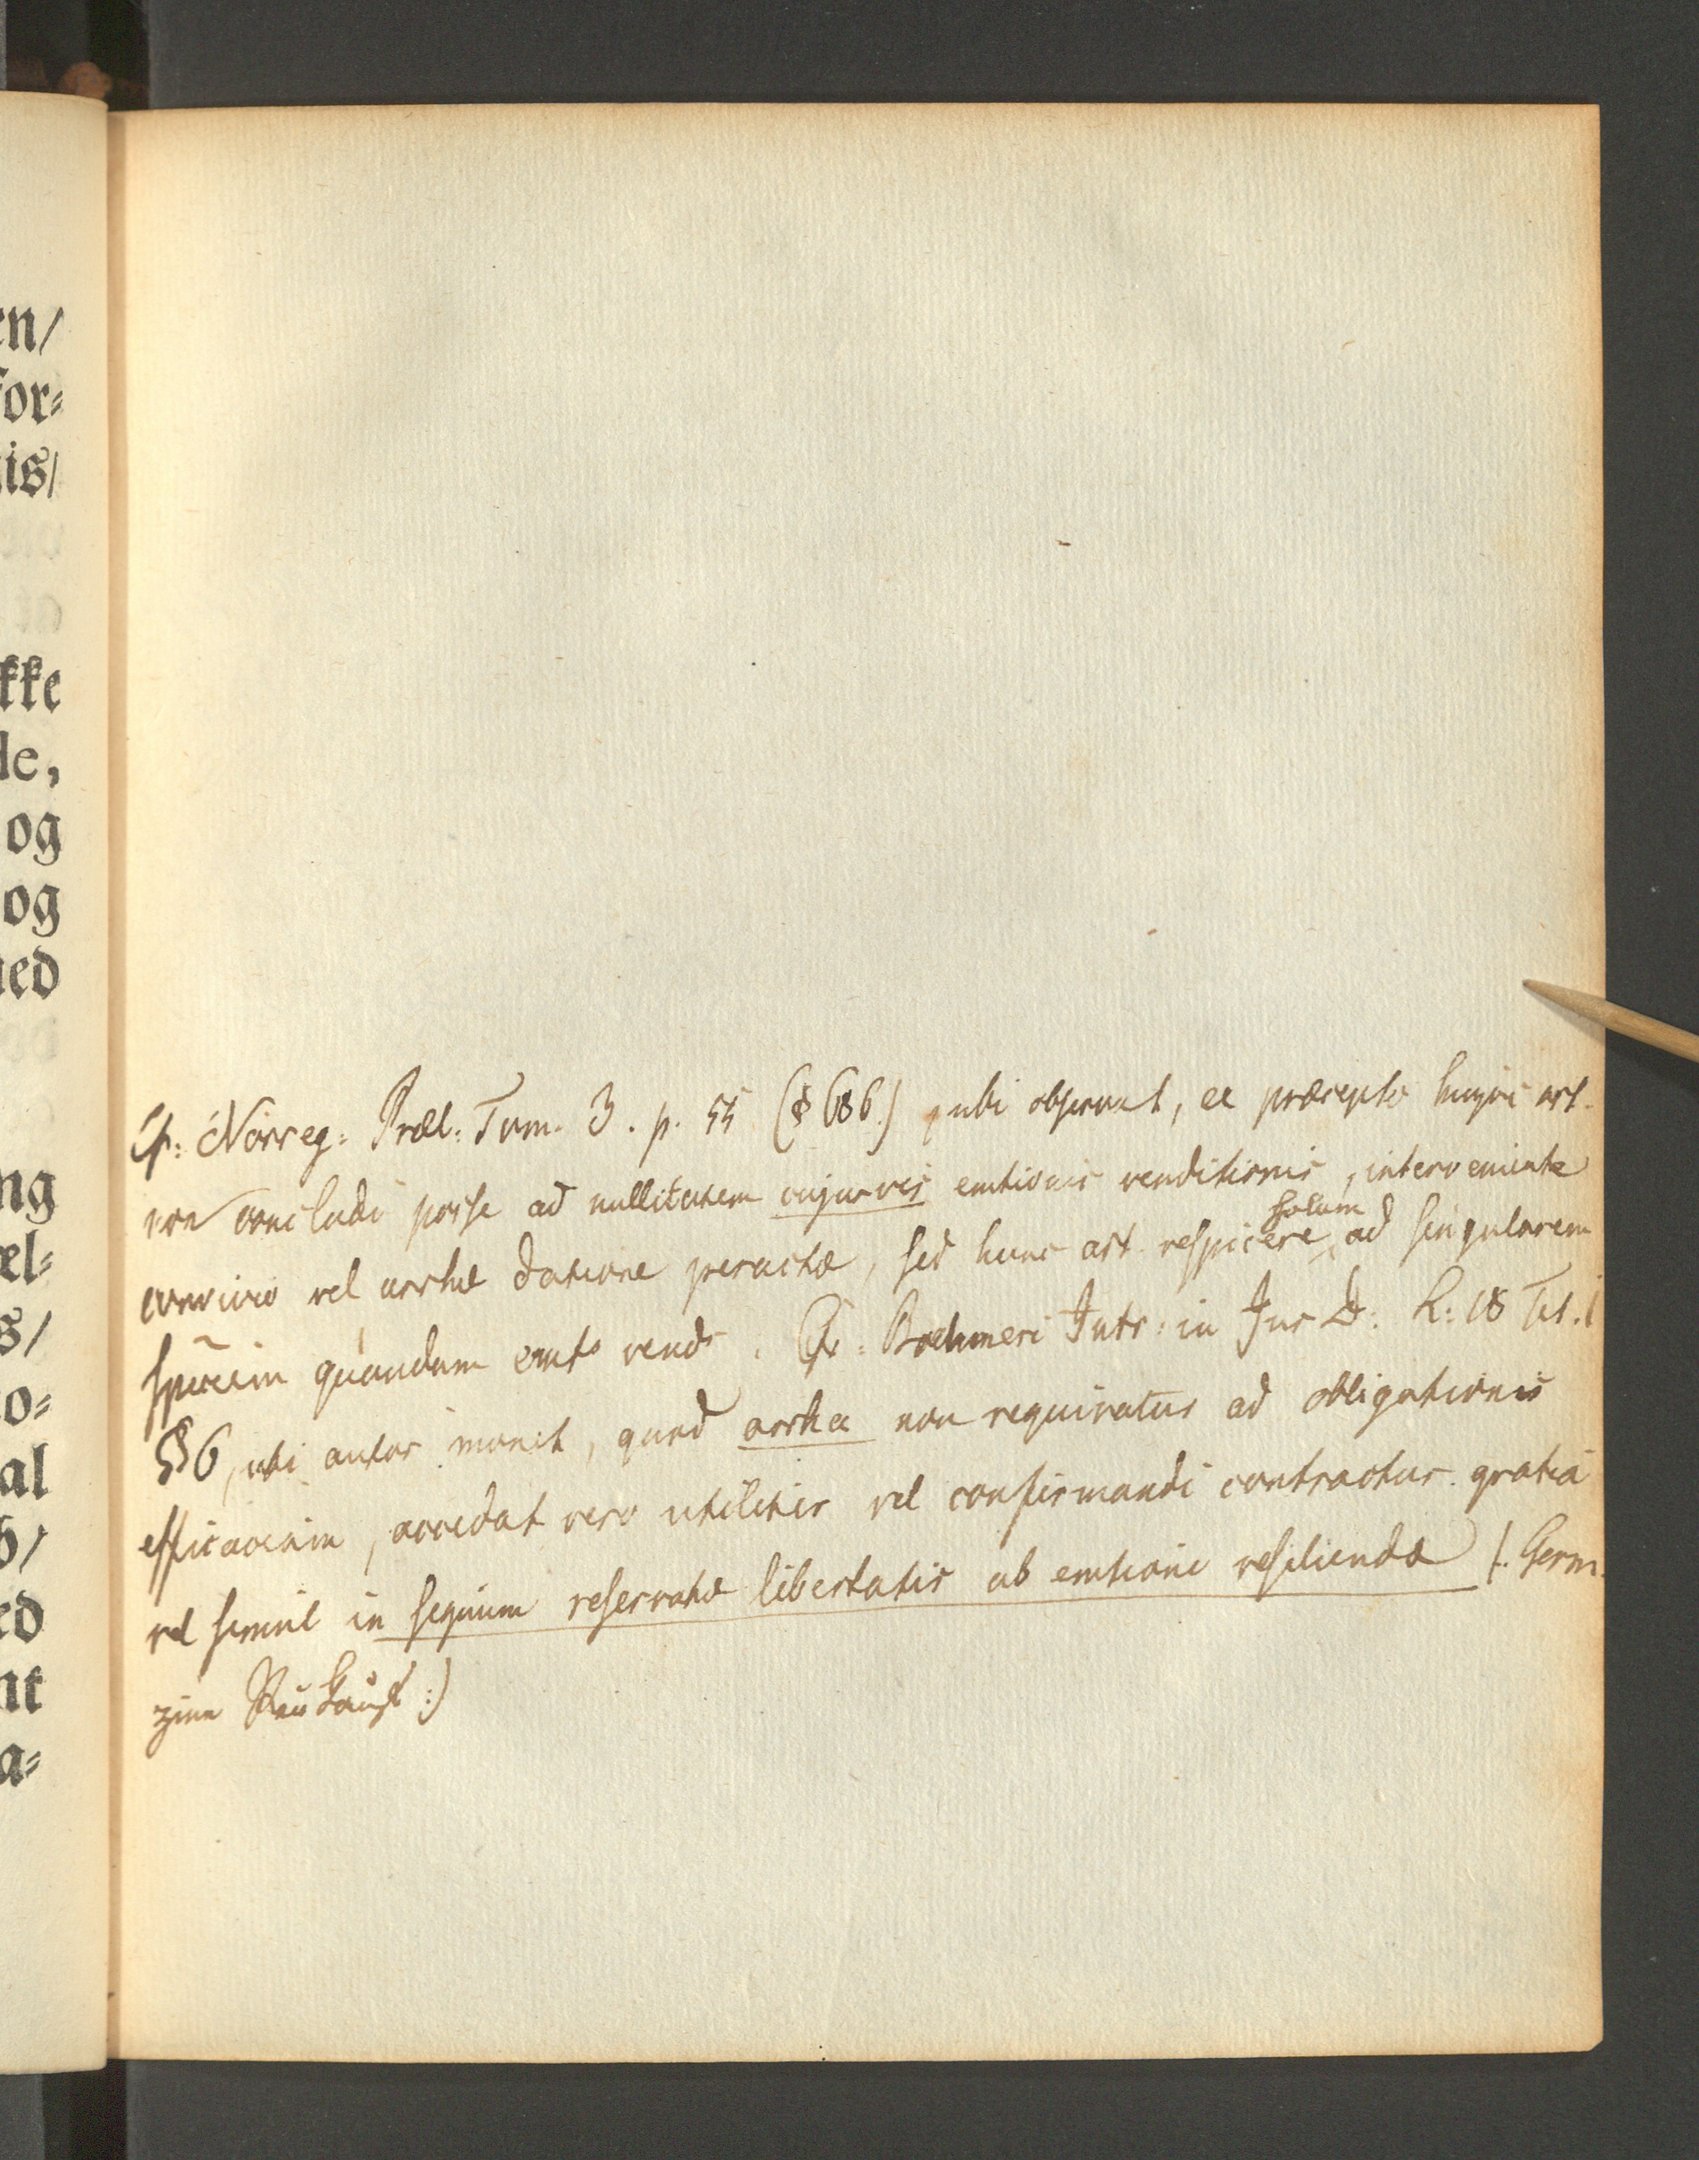 en/
for=
is/
kke
de,
og
og
ed
ng
el=
s/
o=
al
ed
nt
a=
Cfr: Nörreg: Præl: Tom. 3. p. 55 (§ 686.) ubi observat, ex præcepto hujus art.
non concludi posse ad nullitatem cujusvis emtionis venditionis, interveniente
convivio vel arrhæ datione peractæ, sed hunc art. respicere solum ad singularem
speciem quandam emts vends. Cfr: Boehmeri Intr: in Jus D: L: 18 Tit. 1
§ 6, ubi autor monet, quod arrha non requiratur ad obligationis
efficaciam, accedat vero utiliter vel confirmandi contractus gratiâ
vel simul in signum reservatæ libertatis ab emtione resiliendæ (: Germ.
zum Reukauf :)